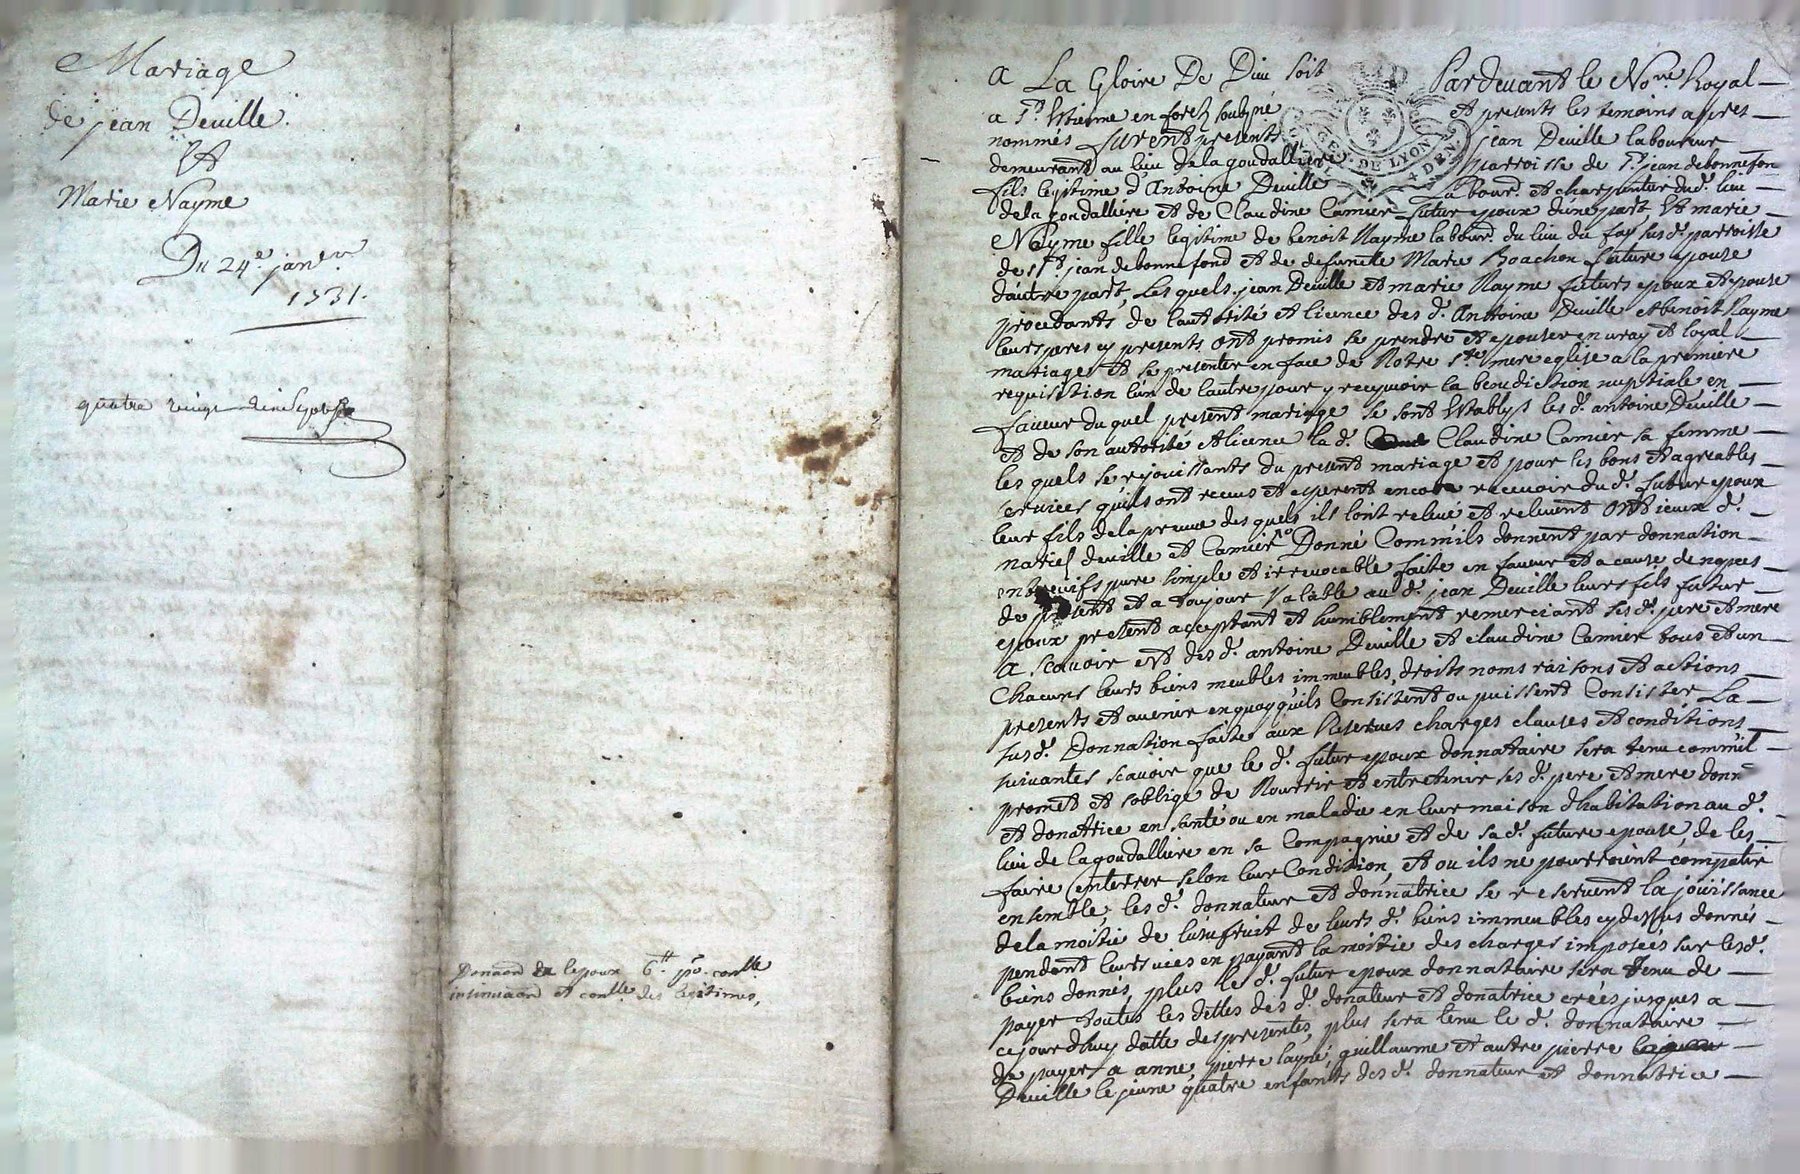 Mariage
de jean Deville
Et
Marie Nayme
Du 24e. janer
1731.
quatre vingt dix sept
Donaon de lepoux 6tt po. conlle
insinuaon et conlle des legitimes,
GEN. DE LYON
A La Gloire De Dieu soit Pardevant le Nore. Royal
a St. Etienne en forez soubzné et presents les temoins apres
nommés furent presents jean Deville laboureur
demeurant au lieu de la goudalliere parroisse de St. jean de bonnefon
fils legitime d'Antoine Deville labourd. et charpentier dud. lieu
de la goudalliere et de Claudine Camier futur epoux d'une part, Et marie
Nayme fille legitime de benoit Nayme labourd. du lieu du fay susd. parroisse
de St. jean de bonnefond et de defuncte Marie Boachon future epouse
d'autre part, Les quels jean Deville et marie Nayme futurs epoux et epouse
procedants de l'autorité et licence des d. Antoine Deville et benoit Nayme
leurs peres cy presents ont promis se prendre et epouser en vray et loyal
mariage et se presenter en face de Notre Ste mere eglise a la premiere
requisition l'un de l'autre pour y recepvoir la benediction nuptiale en
faveur du quel present mariage se sont Etablys les d. antoine Deville
et de son autorité et licence la d. Claudine Camier sa femme
les quels se rejouissants du present mariage et pour les bons et agreables
services qu'ils ont receus et esperent encore recevoir du d. futur epoux
leur fils de la preuve des quels ils l'ont relevé et relevent ont iceux d.
mariés deville et Camier Donné Comm'ils donnent par donnation
entre vifs pure simple et irrevocable faite en faveur et a cause de nopces
de present et a toujour valable au d. jean Deville leurs fils futur
epoux present acceptant et humblement remerciant ses d. pere et mere
a scavoir est des d. antoine Deville et claudine Camier tous et un
Chacuns leurs biens meubles immeubles, droits noms raisons et actions
presents et avenir en quoy qu'ils Consistent ou puissent Consister La
susd. Donnation faite aux Reserves charges clauses et conditions
suivantes scavoir que le d. futur epoux donnataire sera tenu comm'il
promet et s'obligé de Nourrir et entretenir ses d. pere et mere donnr
et donatrice en santé ou en maladie en leur maison d'habitation au d.
lieu de la goudalliere en sa Compagnie et de sa d. future epouse de les
faire enterrer selon leur Condition, et ou ils ne pourroient compatir
ensemble, les d. donnateur et donnatrice se reservent la jouissance
de la moitié de l'usufruit de leurs d. biens immeubles cy dessus donnés
pendant leurs vies en payant la moitié des charges imposées sur les d.
biens donnés, plus le d. futur epoux donnataire sera tenu de
payer toutes les dettes des d. donateur et donatrice creés jusques a
ce jourdhuy datte des presentes, plus sera tenu le d. donnataire
de payer a anne, pierre layné, guillaume et autre pierre
Deville le jeune quatre enfants des d. donnateur et donnatrice